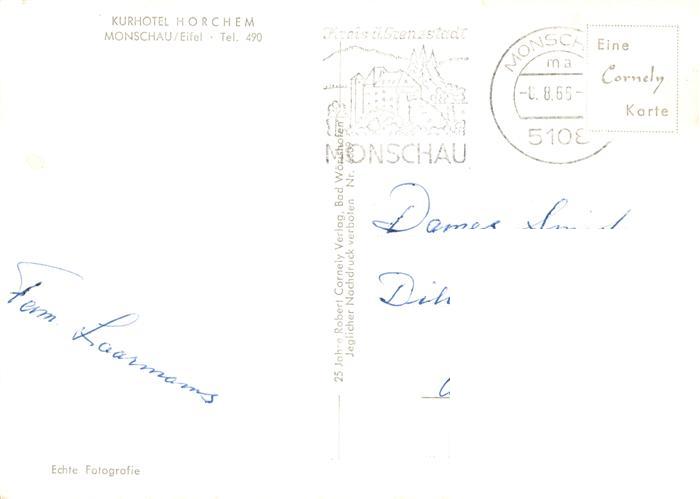 KURHOTEL HORCHEM
MONSCHAU/Eifel · Tel. 490
Kreis u. Grenzstadt
MONSCHAU
MONSCH
ma
8.66-
5108
Eine
Cornely
Karte
25 Jahre Robert Cornely Verlag, Bad Wörishofen
Jeglicher Nachdruck verboten Nr.
Dames
Fam. Laarmans
Echte Fotografie